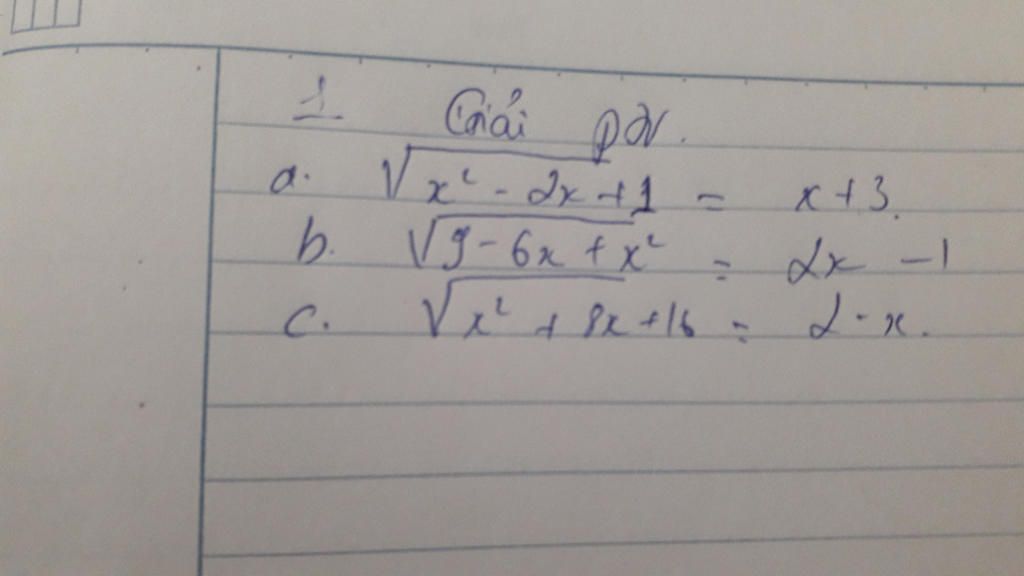 1 Giải pt.
a. √x² - 2x + 1 = x + 3.
b. √9 - 6x + x² = 2x - 1
c. √x² + 8x + 16 = 2 - x.